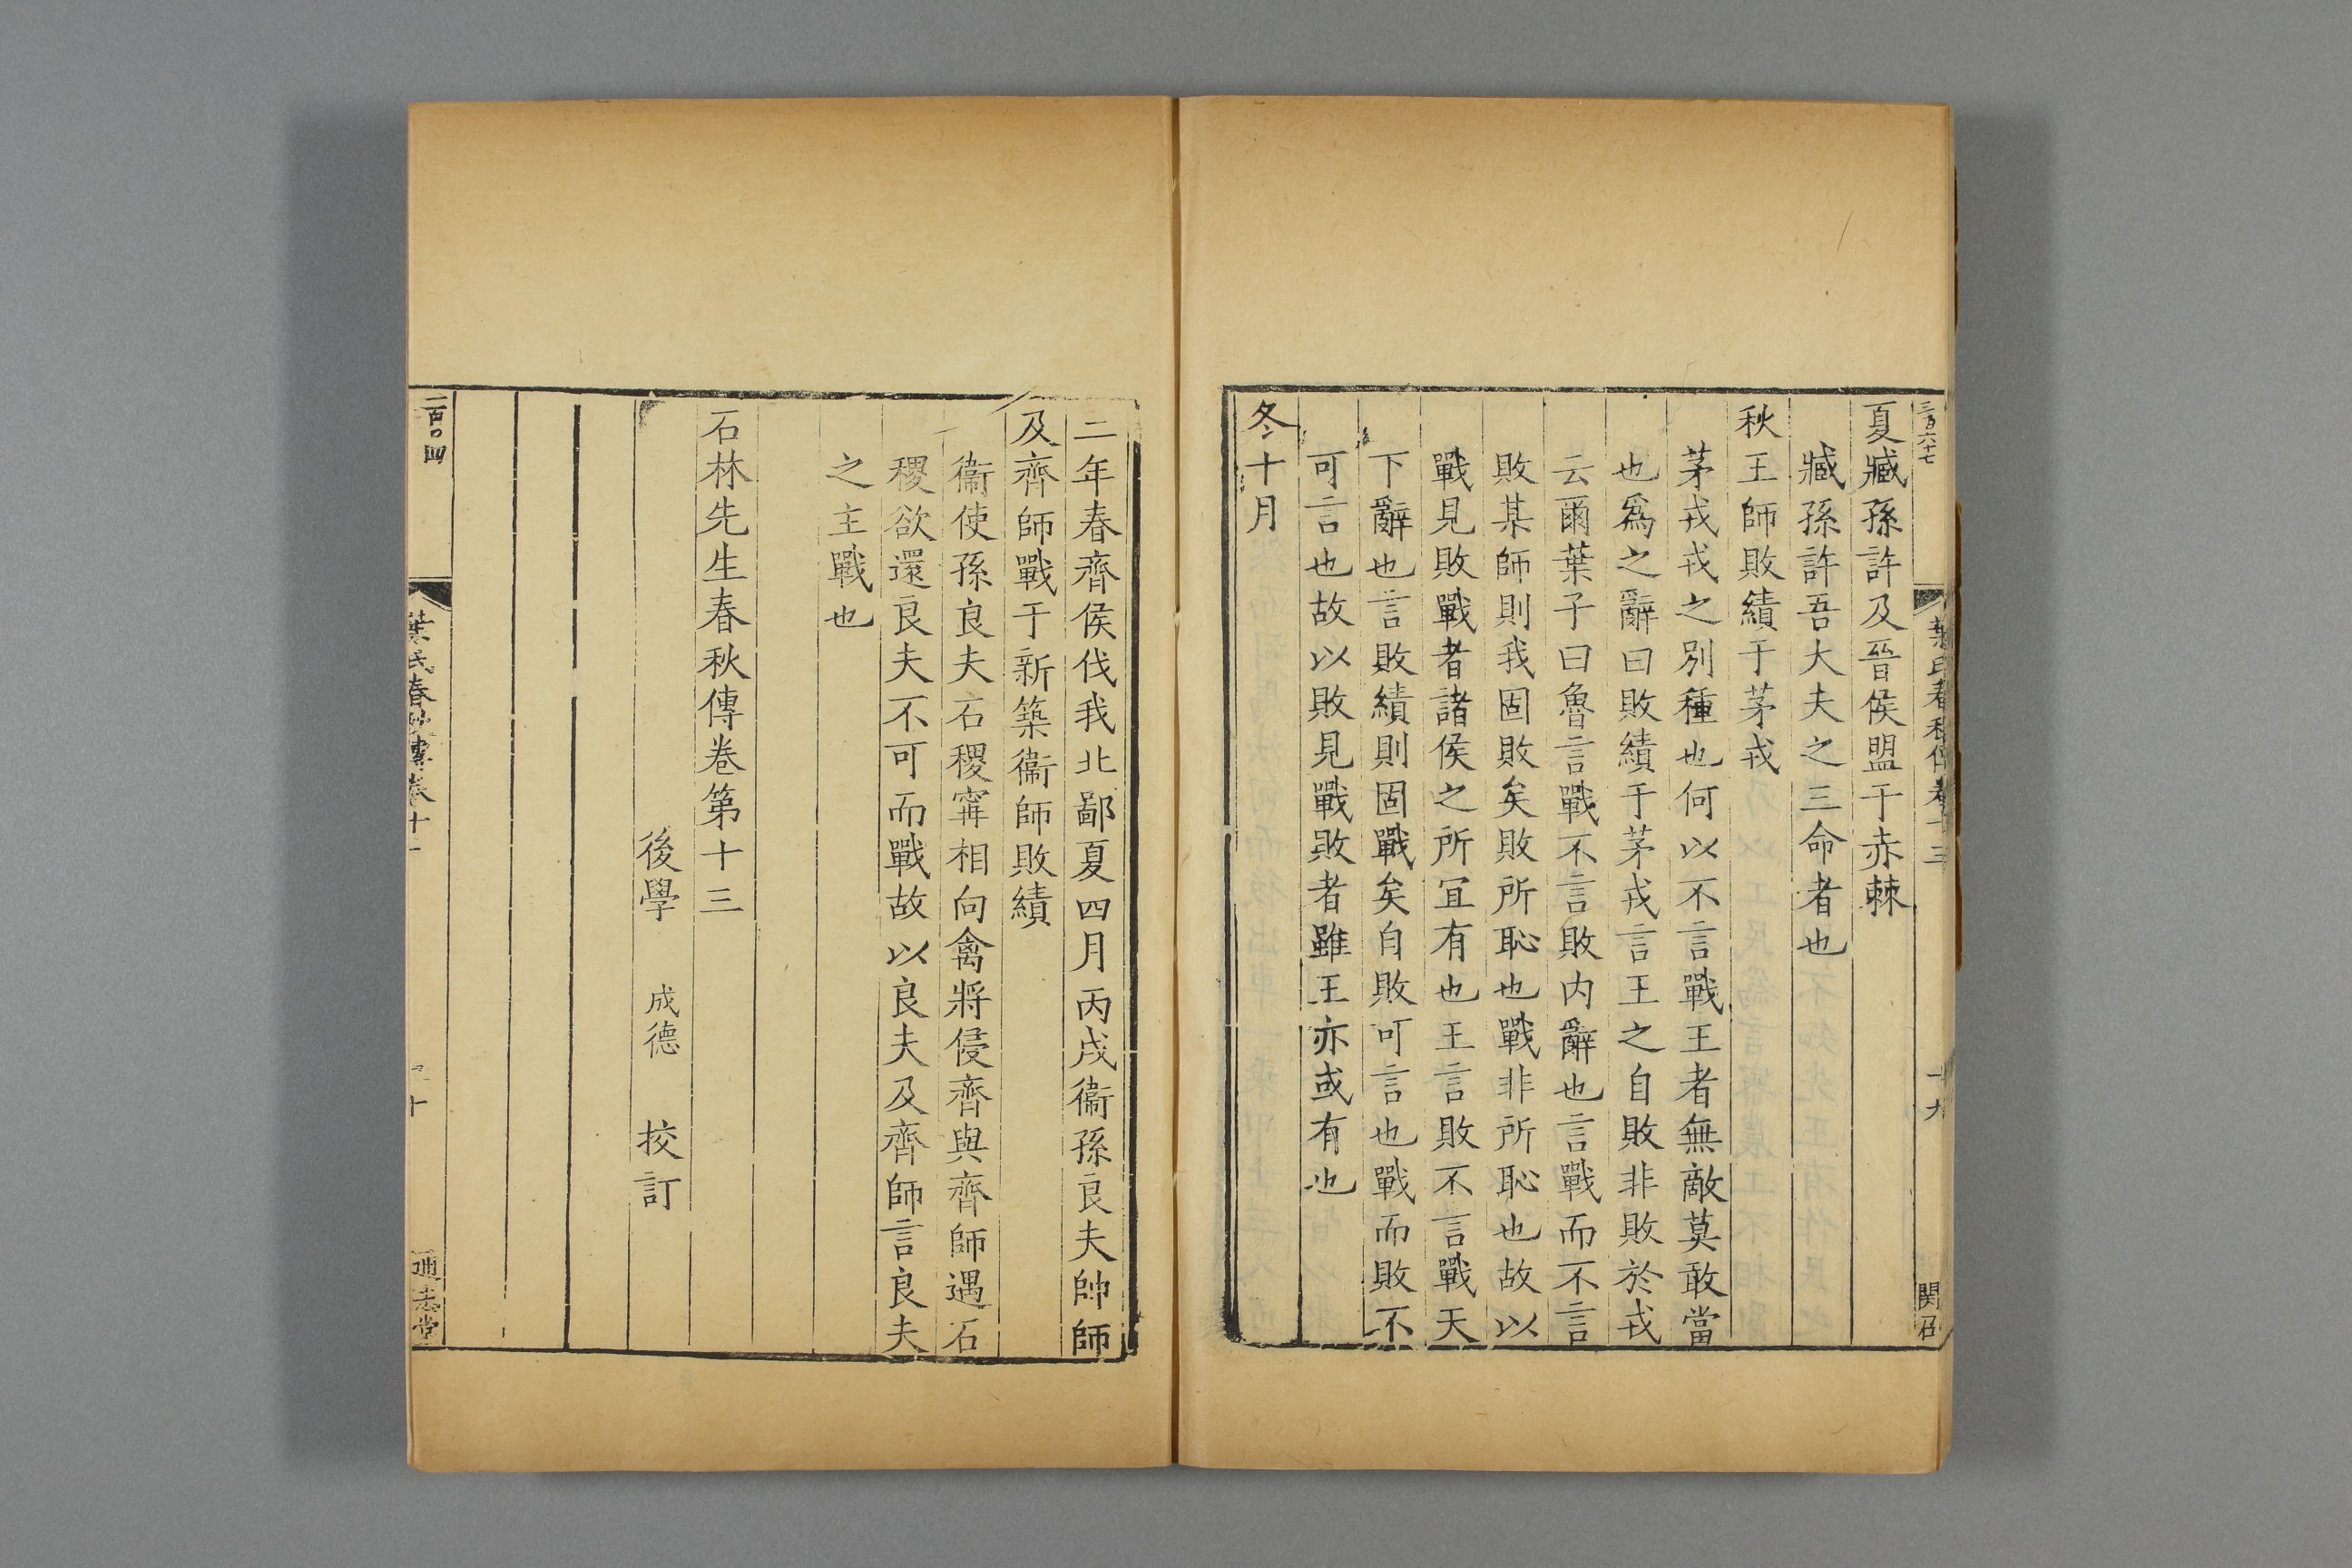 三百六十七
葉氏春秋傳卷十三
十九
関召
夏臧孫許及晉侯盟于赤棘
臧孫許吾大夫之三命者也
秋王師敗績于茅戎
茅戎戎之別種也何以不言戰王者無敵莫敢當
也爲之辭曰敗績于茅戎言王之自敗非敗於戎
云爾葉子曰魯言戰不言敗內辭也言戰而不言
敗某師則我固敗矣敗所恥也戰非所恥也故以
戰見敗戰者諸侯之所宜有也王言敗不言戰天
下辭也言敗績則固戰矣自敗可言也戰而敗不
可言也故以敗見戰敗者雖王亦或有也
冬十月
二年春齊侯伐我北鄙夏四月丙戌衞孫良夫帥師
及齊師戰于新築衞師敗績
衞使孫良夫石稷甯相向禽將侵齊與齊師遇石
稷欲還良夫不可而戰故以良夫及齊師言良夫
之主戰也
石林先生春秋傳卷第十三
後學 成德 挍訂
二百〇四
葉氏春秋傳卷十
通志堂